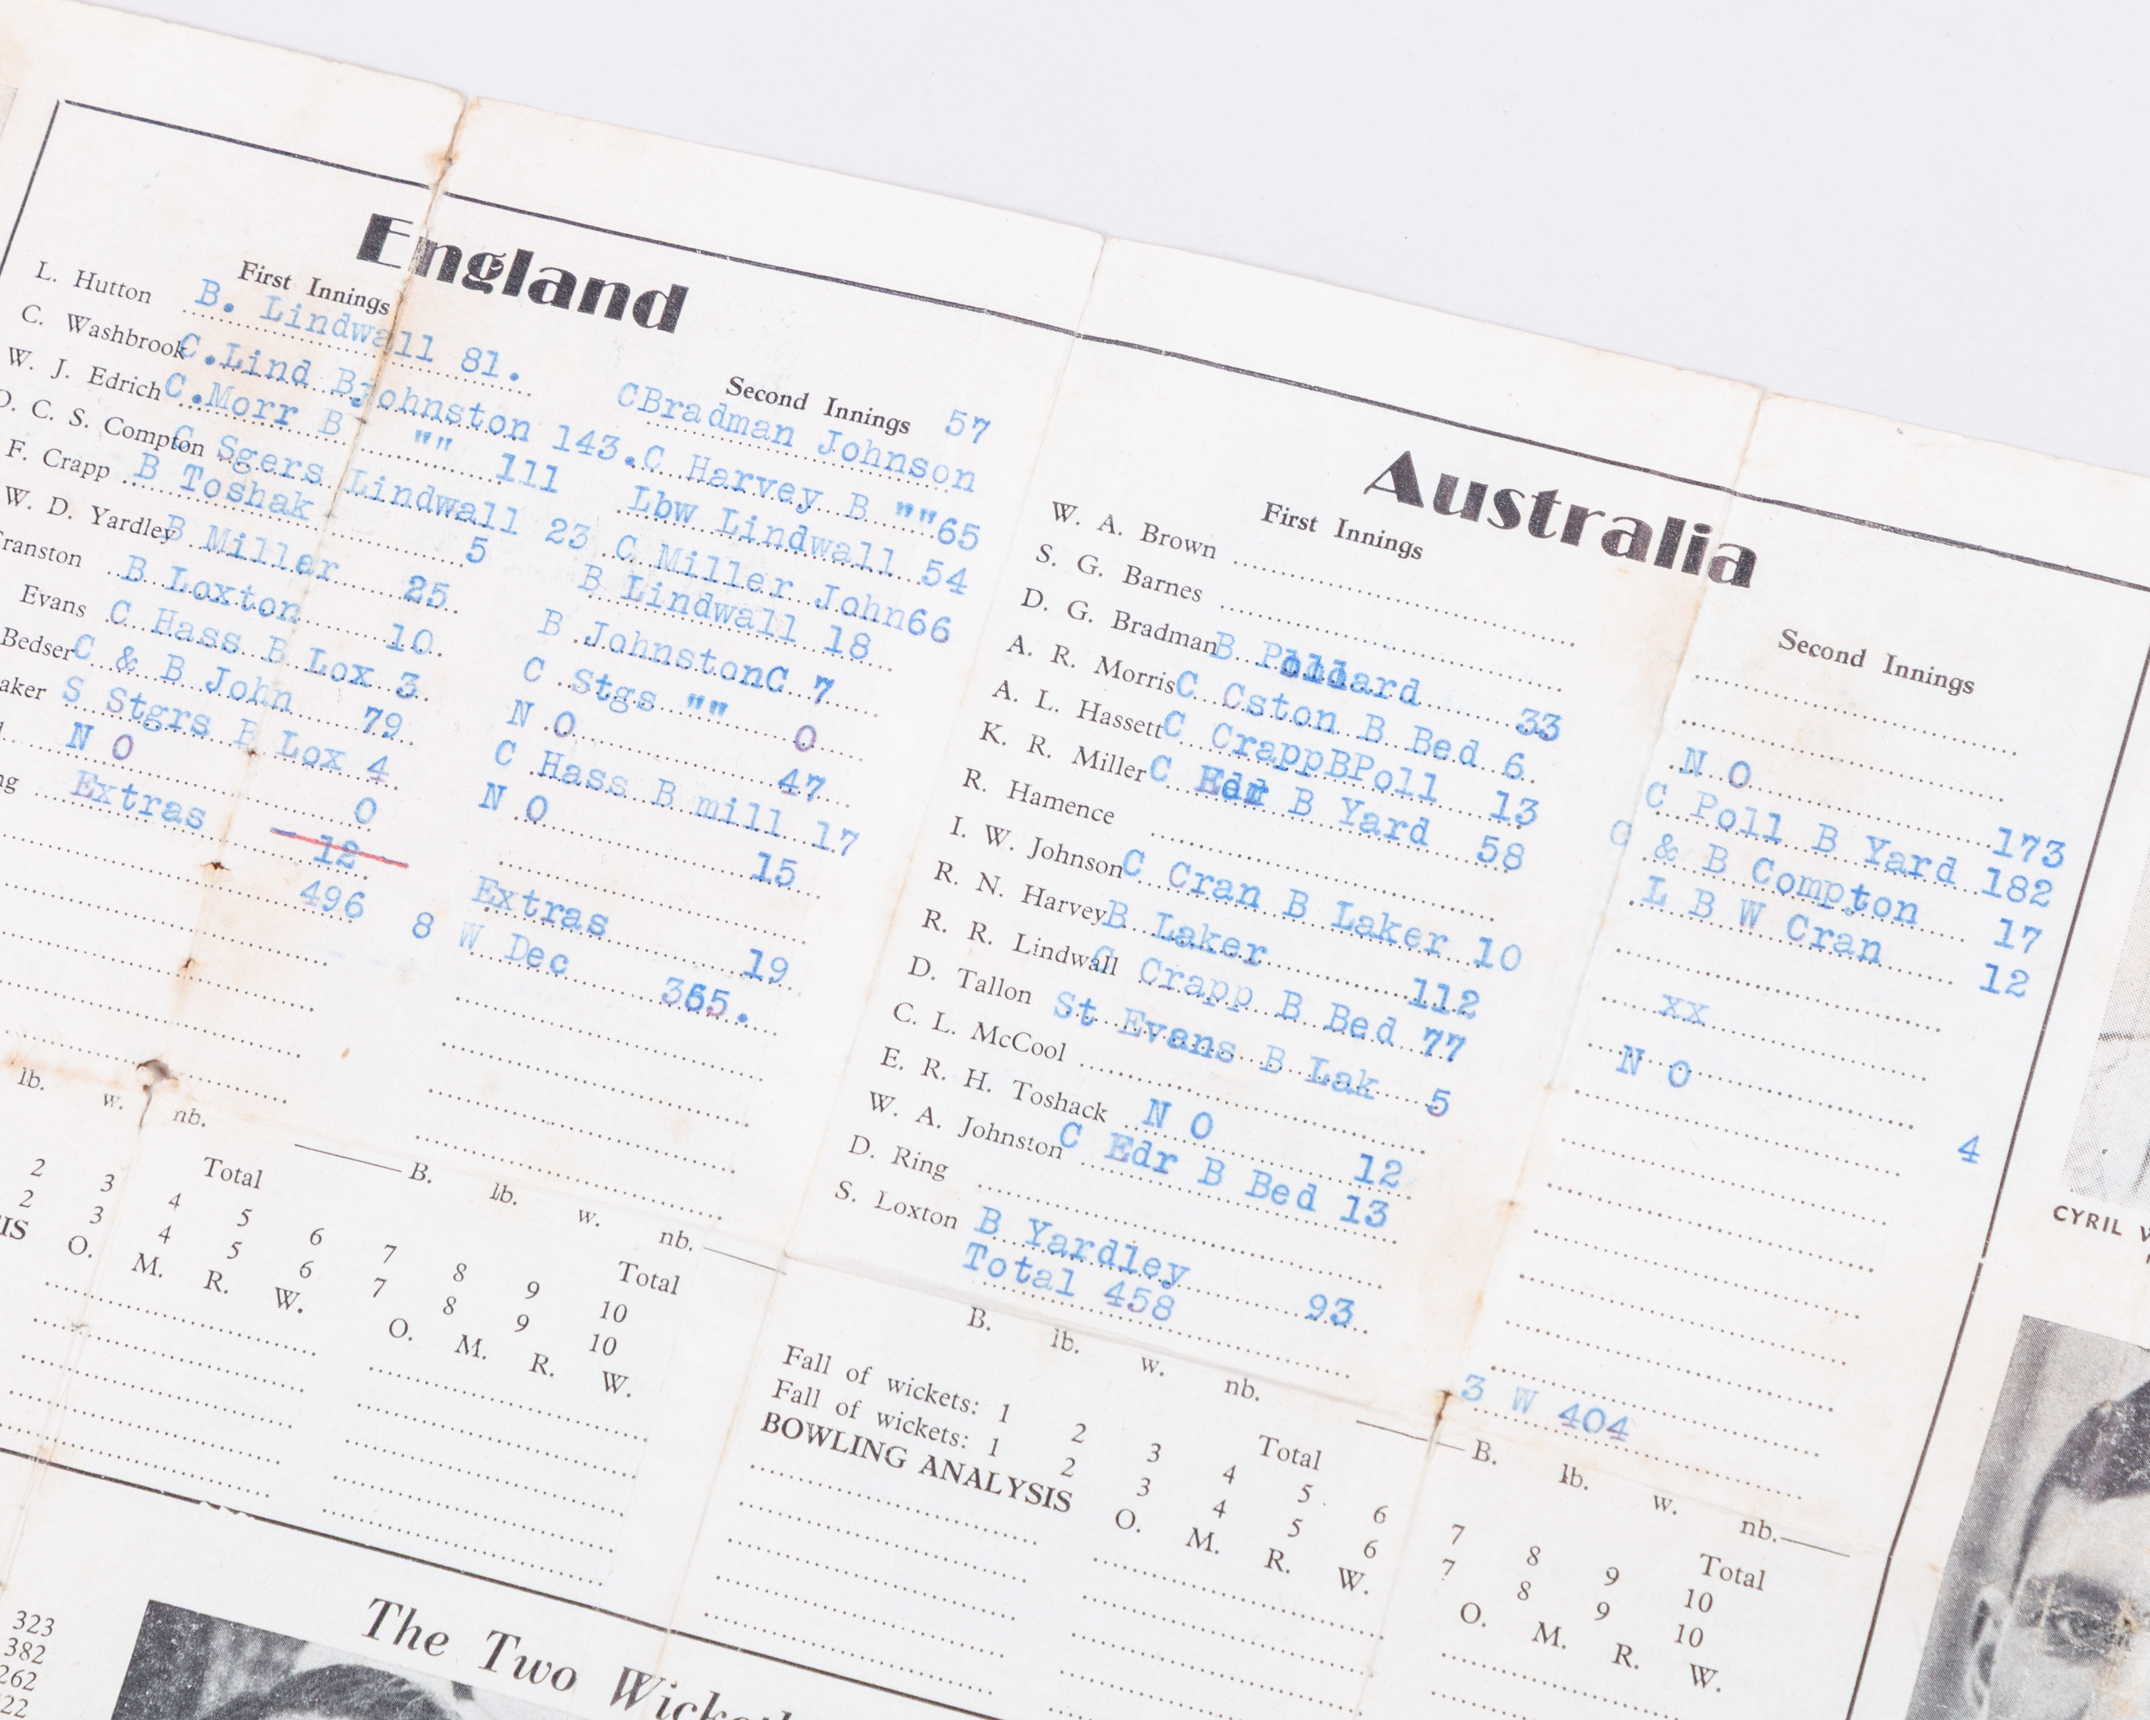 England
First Innings
Second Innings
L. Hutton B. Lindwall 81. CBradman Johnson 57
C. Washbrook C.Lind BJohnston 143. C Harvey B "" 65
W. J. Edrich C.Morr B "" 111 Lbw Lindwall 54
D. C. S. Compton C Sgers Lindwall 23 C Miller John 66
F. Crapp B Toshak 5 B Lindwall 18
W. D. Yardley B Miller 25 B JohnstonC 7
ranston B Loxton 10 C Stgs "" 0
Evans C Hass B Lox 3 N O 47
Bedser C & B John 79 C Hass B mill 17
aker S Stgrs B Lox 4 N O 15
N O 0
ng Extras 12 Extras 19
496 8 W Dec 365.
lb. w. nb. Total B. lb. w. nb. Total
2 3 4 5 6 7 8 9 10
2 3 4 5 6 7 8 9 10
IS O. M. R. W. O. M. R. W.
Australia
First Innings
Second Innings
W. A. Brown
S. G. Barnes
D. G. Bradman B Pollard 33 N O 173
A. R. Morris C Cston B Bed 6 C Poll B Yard 182
A. L. Hassett C CrappBPoll 13 C & B Compton 17
K. R. Miller C Edr B Yard 58 L B W Cran 12
R. Hamence
I. W. Johnson C Cran B Laker 10 xx
R. N. Harvey B Laker 112 N O 4
R. R. Lindwall C Crapp B Bed 77
D. Tallon St Evans B Lak 5
C. L. McCool
E. R. H. Toshack N O 12
W. A. Johnston C Edr B Bed 13
D. Ring
S. Loxton B Yardley 93
Total 458 3 W 404
B. lb. w. nb. Total B. lb. w. nb. Total
Fall of wickets: 1 2 3 4 5 6 7 8 9 10
Fall of wickets: 1 2 3 4 5 6 7 8 9 10
BOWLING ANALYSIS O. M. R. W. O. M. R. W.
CYRIL W
323
382
262
22
The Two Wicket